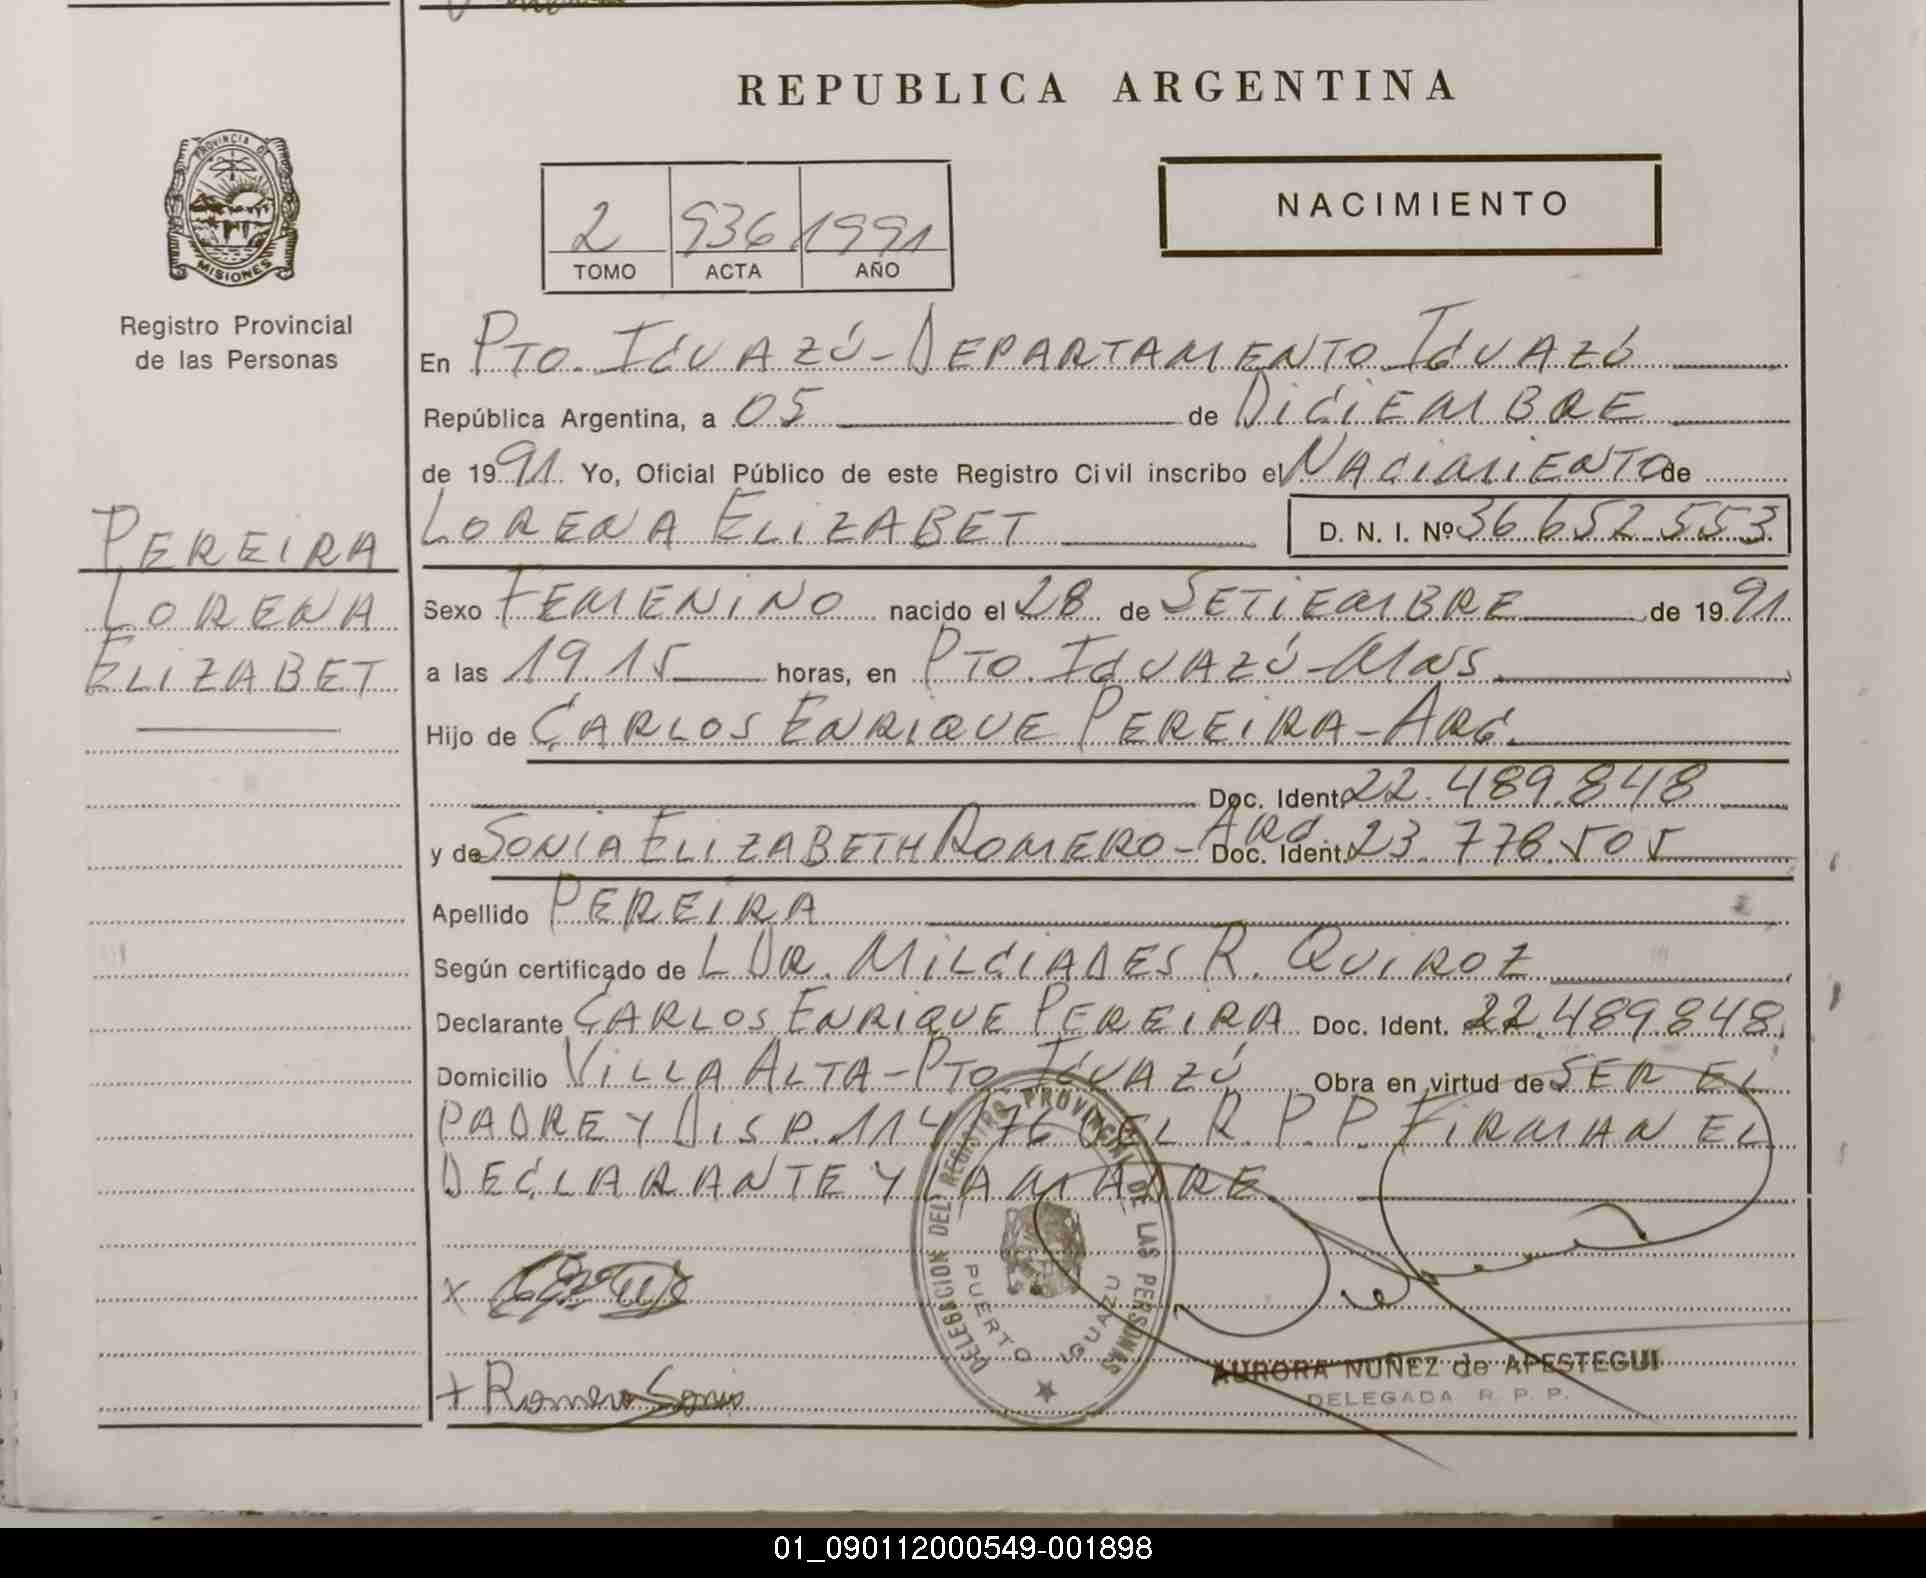 REPUBLICA ARGENTINA
PROVINCIA DE
MISIONES
Registro Provincial
de las Personas
PEREIRA
LORENA
ELIZABET
2 936 1991
TOMO ACTA AÑO
NACIMIENTO
En PTO. IGUAZÚ - DEPARTAMENTO IGUAZÚ
República Argentina, a 05 de DICIEMBRE
de 1991 Yo, Oficial Público de este Registro Civil inscribo el NACIMIENTO de
LORENA ELIZABET D. N. I. Nº 36.652.553
Sexo FEMENINO nacido el 28 de SETIEMBRE de 1991
a las 19.15 horas, en PTO. IGUAZÚ - MNS.
Hijo de CARLOS ENRIQUE PEREIRA - ARG.
Doc. Ident. 22.489.848
y de SONIA ELIZABETH ROMERO - ARG. Doc. Ident. 23.778.505
Apellido PEREIRA
Según certificado de L DR. MILCIADES R. QUIROZ
Declarante CARLOS ENRIQUE PEREIRA Doc. Ident. 22.489.848.
Domicilio VILLA ALTA - PTO IGUAZÚ Obra en virtud de SER EL
PADRE Y DISP. 114/76 DEL R. P. P. FIRMAN EL
DECLARANTE Y LA MADRE
DELEGACION DEL REGISTRO PROVINCIAL DE LAS PERSONAS
PUERTO IGUAZU
x
+ Romero Sonia
AURORA NUÑEZ de APESTEGUI
DELEGADA R. P. P.
01_090112000549-001898